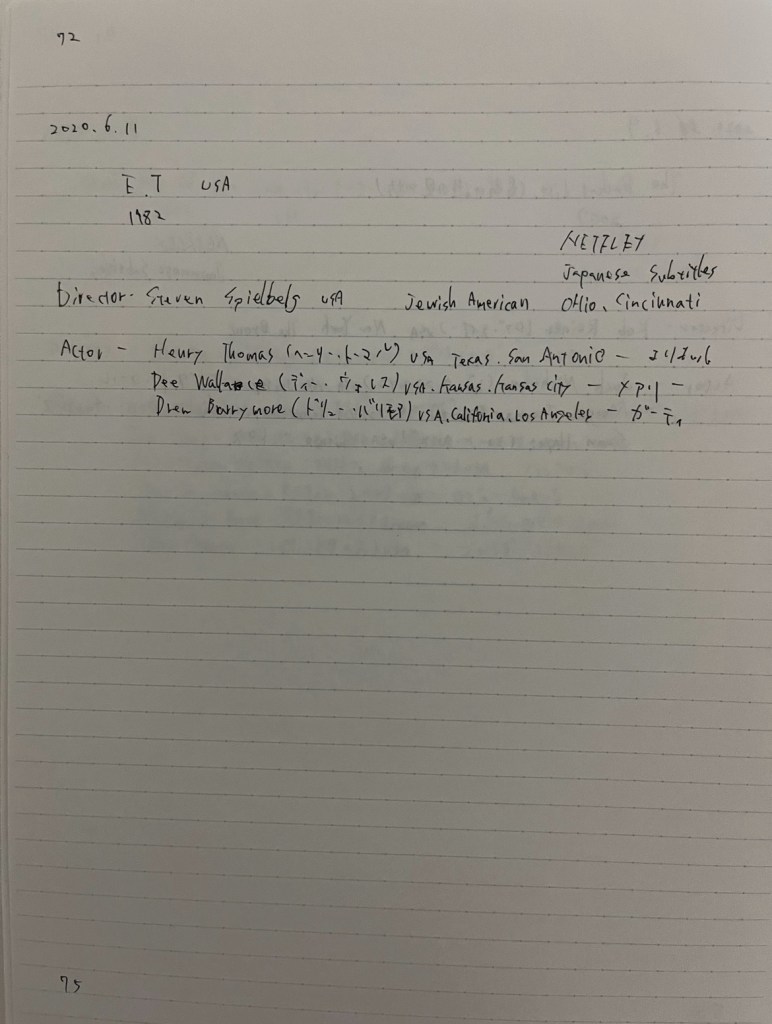 72
2020.6.11
E.T USA
1982
NETFLEY
Japanese Subtitles
Director- Steven Spielbelg USA Jewish American Ohio, Cincinnati
Actor - Henry Thomas (ヘンリー・トーマス) USA Texas. San Antonio - エリオット
Dee Wallace (ディー・ウォレス) USA. Kansas. Kansas city - メアリー
Drew Barrymore (ドリュー・バリモア) USA. Califonia. Los Angeles - ガーティ
75